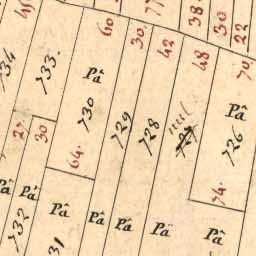 45
60
30
42
77
38
30
22
48
70
734
733.
Pâ
730
729
728
nul
Pâ
726
27
30
64.
74.
Pâ
Pâ
732
Pâ
31
Pâ
Pâ
Pâ
Pâ